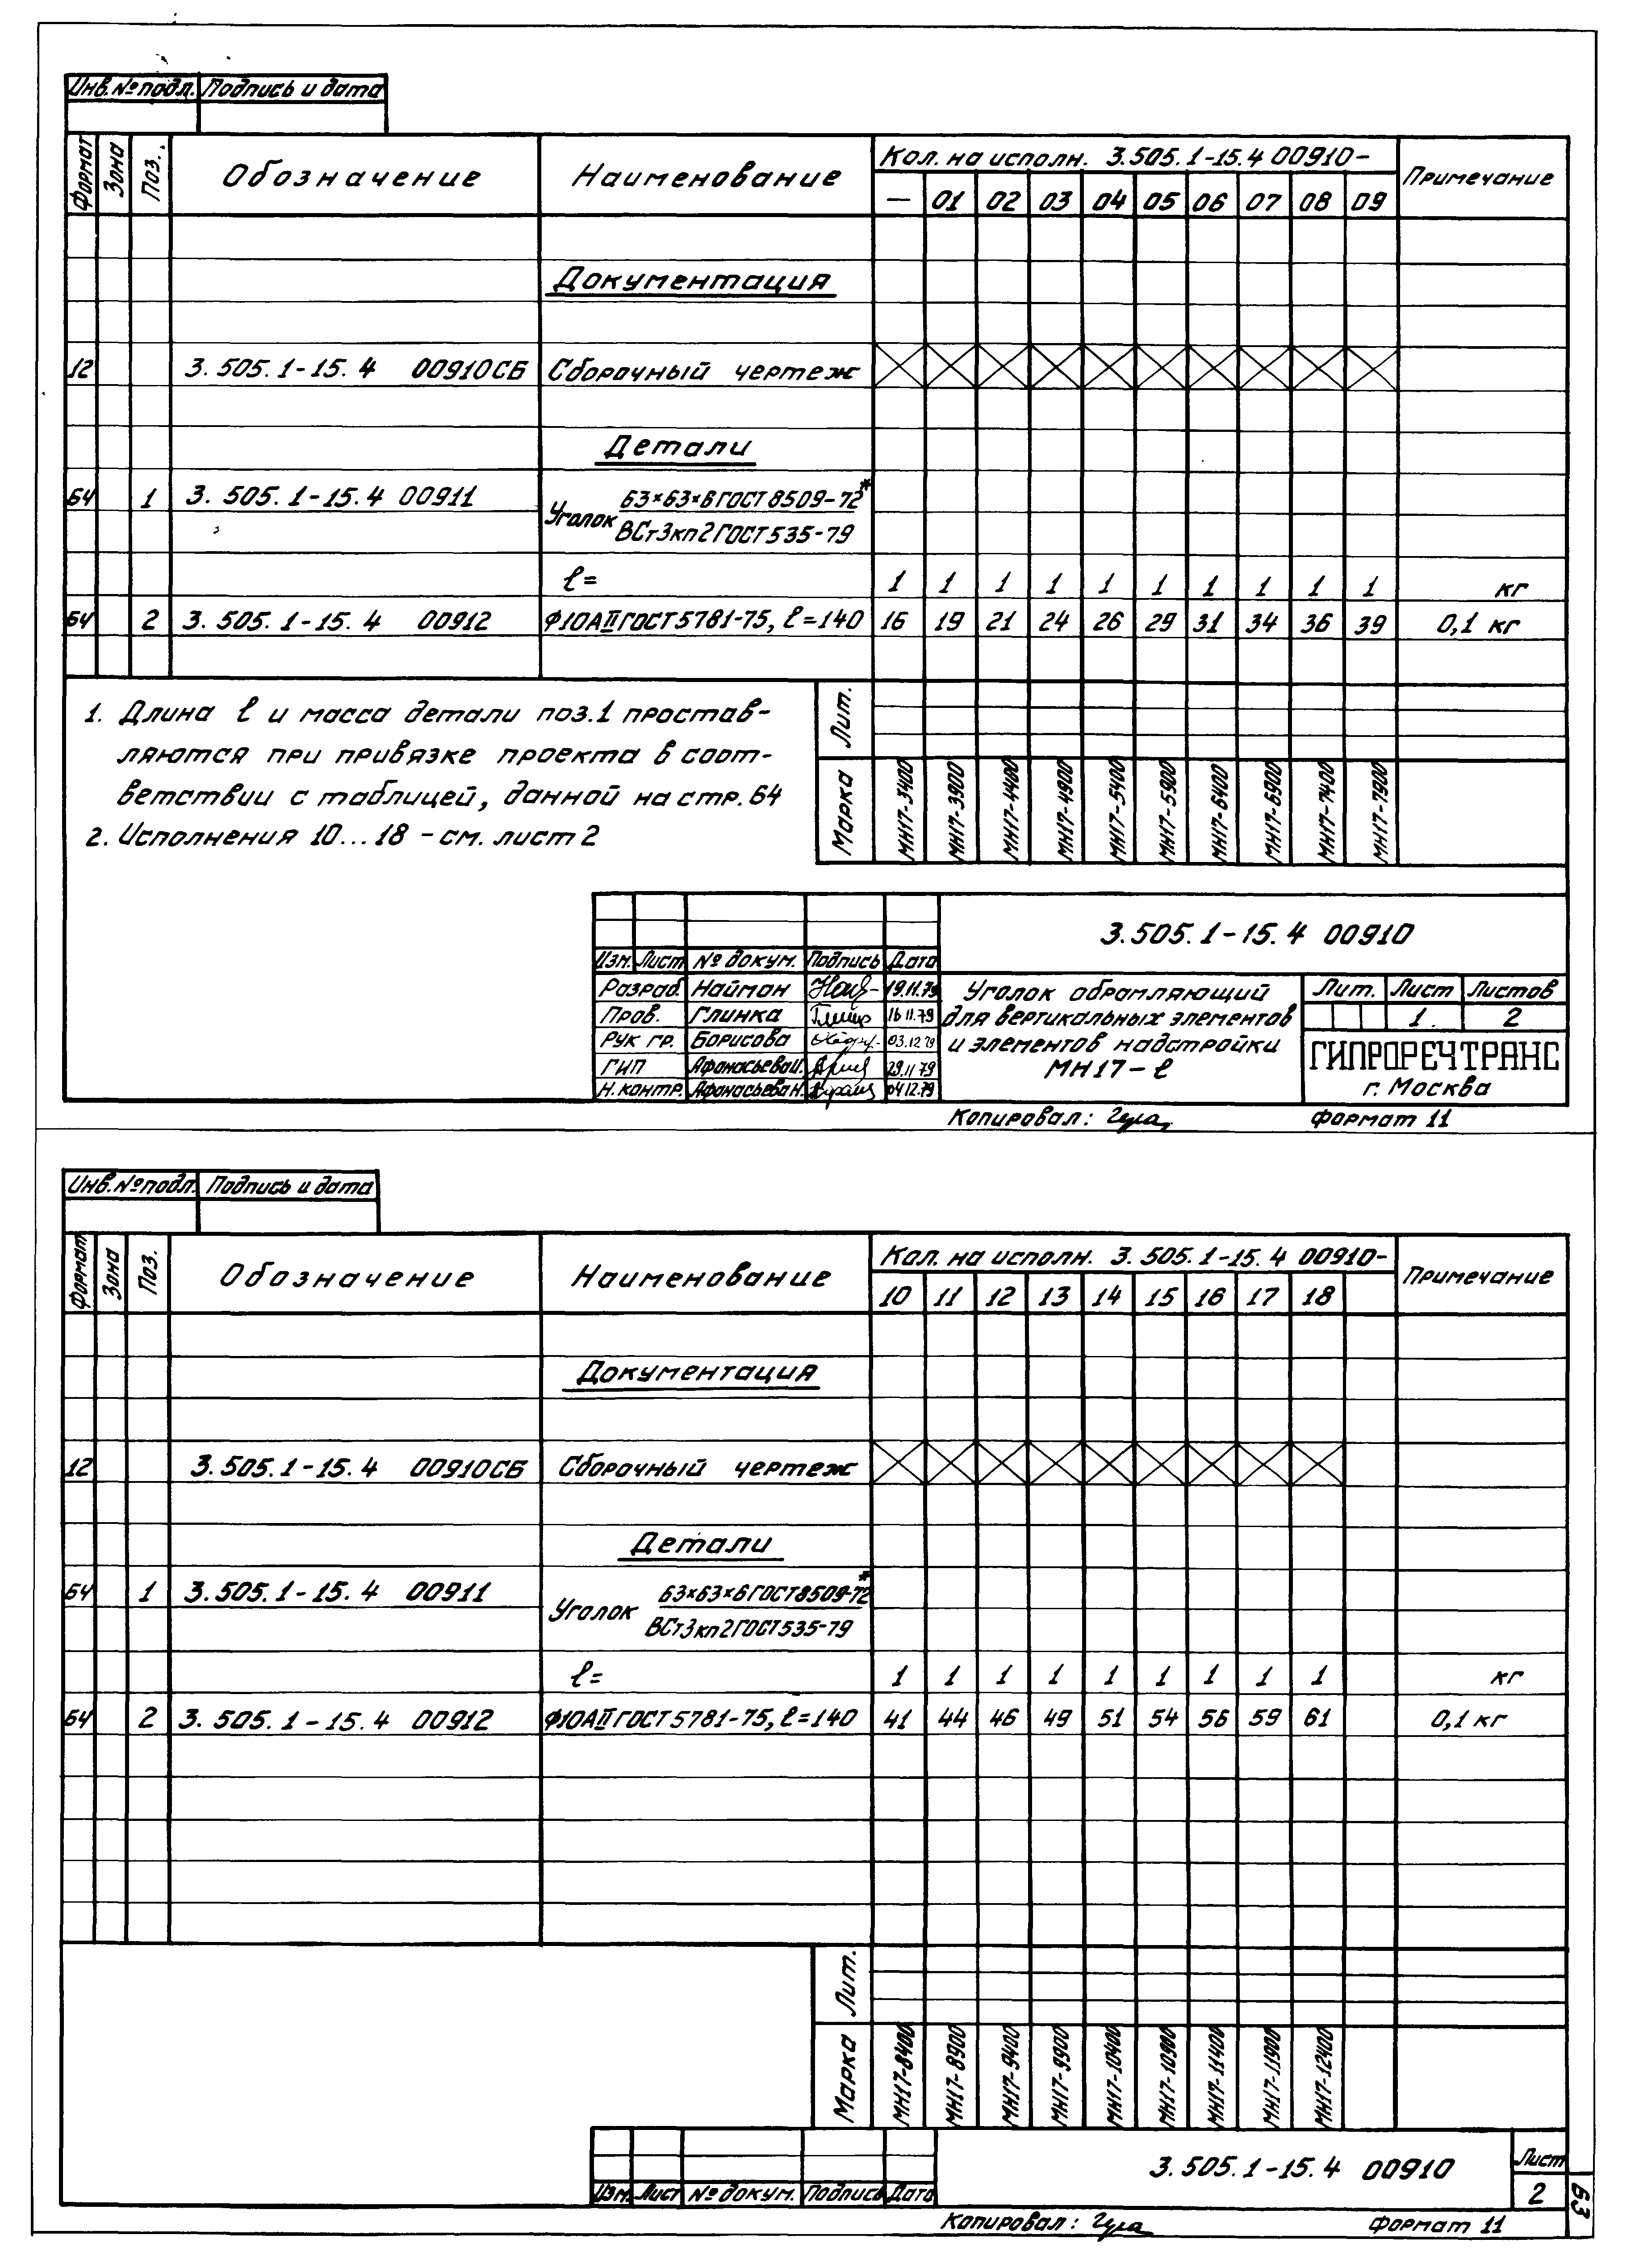 Инв. № подл. Подпись и дата
Формат Зона Поз. Обозначение Наименование Кол. на исполн. 3.505.1-15.4 00910- Примечание
— 01 02 03 04 05 06 07 08 09
Документация
12 3.505.1-15.4 00910СБ Сборочный чертеж
Детали
Б4 1 3.505.1-15.4 00911 Уголок 63×63×6 ГОСТ 8509-72*
ВСт3кп2 ГОСТ 535-79
ℓ= 1 1 1 1 1 1 1 1 1 1 кг
Б4 2 3.505.1-15.4 00912 Ф10АII ГОСТ 5781-75, ℓ=140 16 19 21 24 26 29 31 34 36 39 0,1 кг
1. Длина ℓ и масса детали поз.1 простав-
ляются при привязке проекта в соот-
ветствии с таблицей, данной на стр. 64
2. Исполнения 10...18 - см. лист 2
Лит.
Марка МН17-3400 МН17-3900 МН17-4400 МН17-4900 МН17-5400 МН17-5900 МН17-6400 МН17-6900 МН17-7400 МН17-7900
3.505.1-15.4 00910
Изм. Лист № докум. Подпись Дата
Разраб. Найман 19.11.79
Пров. Глинка 16.11.79
Рук гр. Борисова 03.12.79
ГИП Афанасьева И. 29.11.79
Н. контр. Афанасьева Н. 04.12.79
Уголок обрамляющий
для вертикальных элементов
и элементов надстройки
МН17-ℓ
Лит. Лист Листов
1 2
ГИПРОРЕЧТРАНС
г. Москва
Копировал: Формат 11
Инв. № подл. Подпись и дата
Формат Зона Поз. Обозначение Наименование Кол. на исполн. 3.505.1-15.4 00910- Примечание
10 11 12 13 14 15 16 17 18
Документация
12 3.505.1-15.4 00910СБ Сборочный чертеж
Детали
Б4 1 3.505.1-15.4 00911 Уголок 63×63×6 ГОСТ 8509-72*
ВСт3кп2 ГОСТ 535-79
ℓ= 1 1 1 1 1 1 1 1 1 кг
Б4 2 3.505.1-15.4 00912 Ф10АII ГОСТ 5781-75, ℓ=140 41 44 46 49 51 54 56 59 61 0,1 кг
Лит.
Марка МН17-8400 МН17-8900 МН17-9400 МН17-9900 МН17-10400 МН17-10900 МН17-11400 МН17-11900 МН17-12400
3.505.1-15.4 00910
Лист
2
Изм. Лист № докум. Подпись Дата
63
Копировал: Формат 11